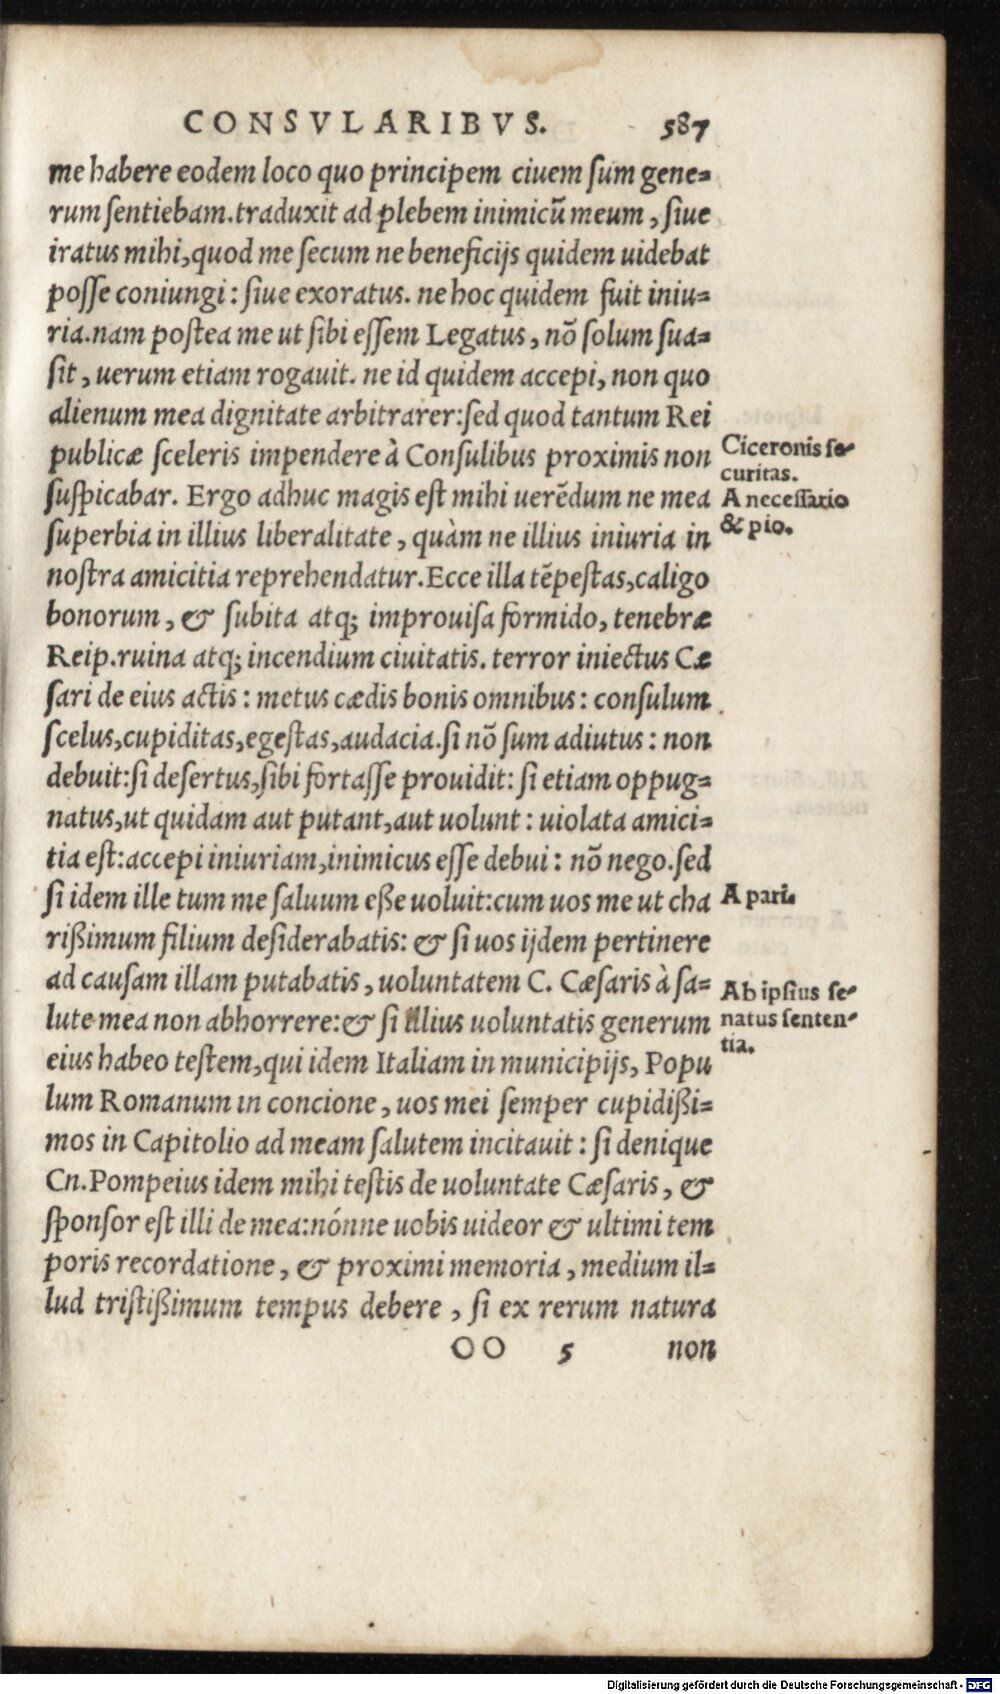 CONSVLARIBVS. 587
me habere eodem loco quo principem ciuem sum gene=
rum sentiebam.traduxit ad plebem inimicũ meum, siue
iratus mihi,quod me secum ne beneficijs quidem uidebat
posse coniungi: siue exoratus. ne hoc quidem fuit iniu=
ria.nam postea me ut sibi essem Legatus, nõ solum sua=
sit, uerum etiam rogauit. ne id quidem accepi, non quo
alienum mea dignitate arbitrarer:sed quod tantum Rei
publicæ sceleris impendere à Consulibus proximis non
suspicabar. Ergo adhuc magis est mihi uerẽdum ne mea
superbia in illius liberalitate, quàm ne illius iniuria in
nostra amicitia reprehendatur. Ecce illa tẽpestas,caligo
bonorum, & subita atq; improuisa formido, tenebræ
Reip.ruina atq; incendium ciuitatis. terror iniectus Cæ
sari de eius actis: metus cædis bonis omnibus: consulum
scelus,cupiditas,egestas,audacia.si nõ sum adiutus: non
debuit:si desertus,sibi fortasse prouidit: si etiam oppug=
natus,ut quidam aut putant,aut uolunt: uiolata amici=
tia est:accepi iniuriam,inimicus esse debui: nõ nego.sed
si idem ille tum me saluum eße uoluit:cum uos me ut cha
rißimum filium desiderabatis: & si uos ijdem pertinere
ad causam illam putabatis, uoluntatem C. Cæsaris à sa=
lute mea non abhorrere:& si illius uoluntatis generum
eius habeo testem,qui idem Italiam in municipijs, Popu
lum Romanum in concione, uos mei semper cupidißi=
mos in Capitolio ad meam salutem incitauit: si denique
Cn.Pompeius idem mihi testis de uoluntate Cæsaris, &
sponsor est illi de mea:nónne uobis uideor & ultimi tem
poris recordatione, & proximi memoria, medium il=
lud tristißimum tempus debere, si ex rerum natura
OO 5 non
Ciceronis se-
curitas.
A necessario
& pio.
A pari.
Ab ipsius se-
natus senten-
tia.
Digitalisierung gefördert durch die Deutsche Forschungsgemeinschaft - DFG